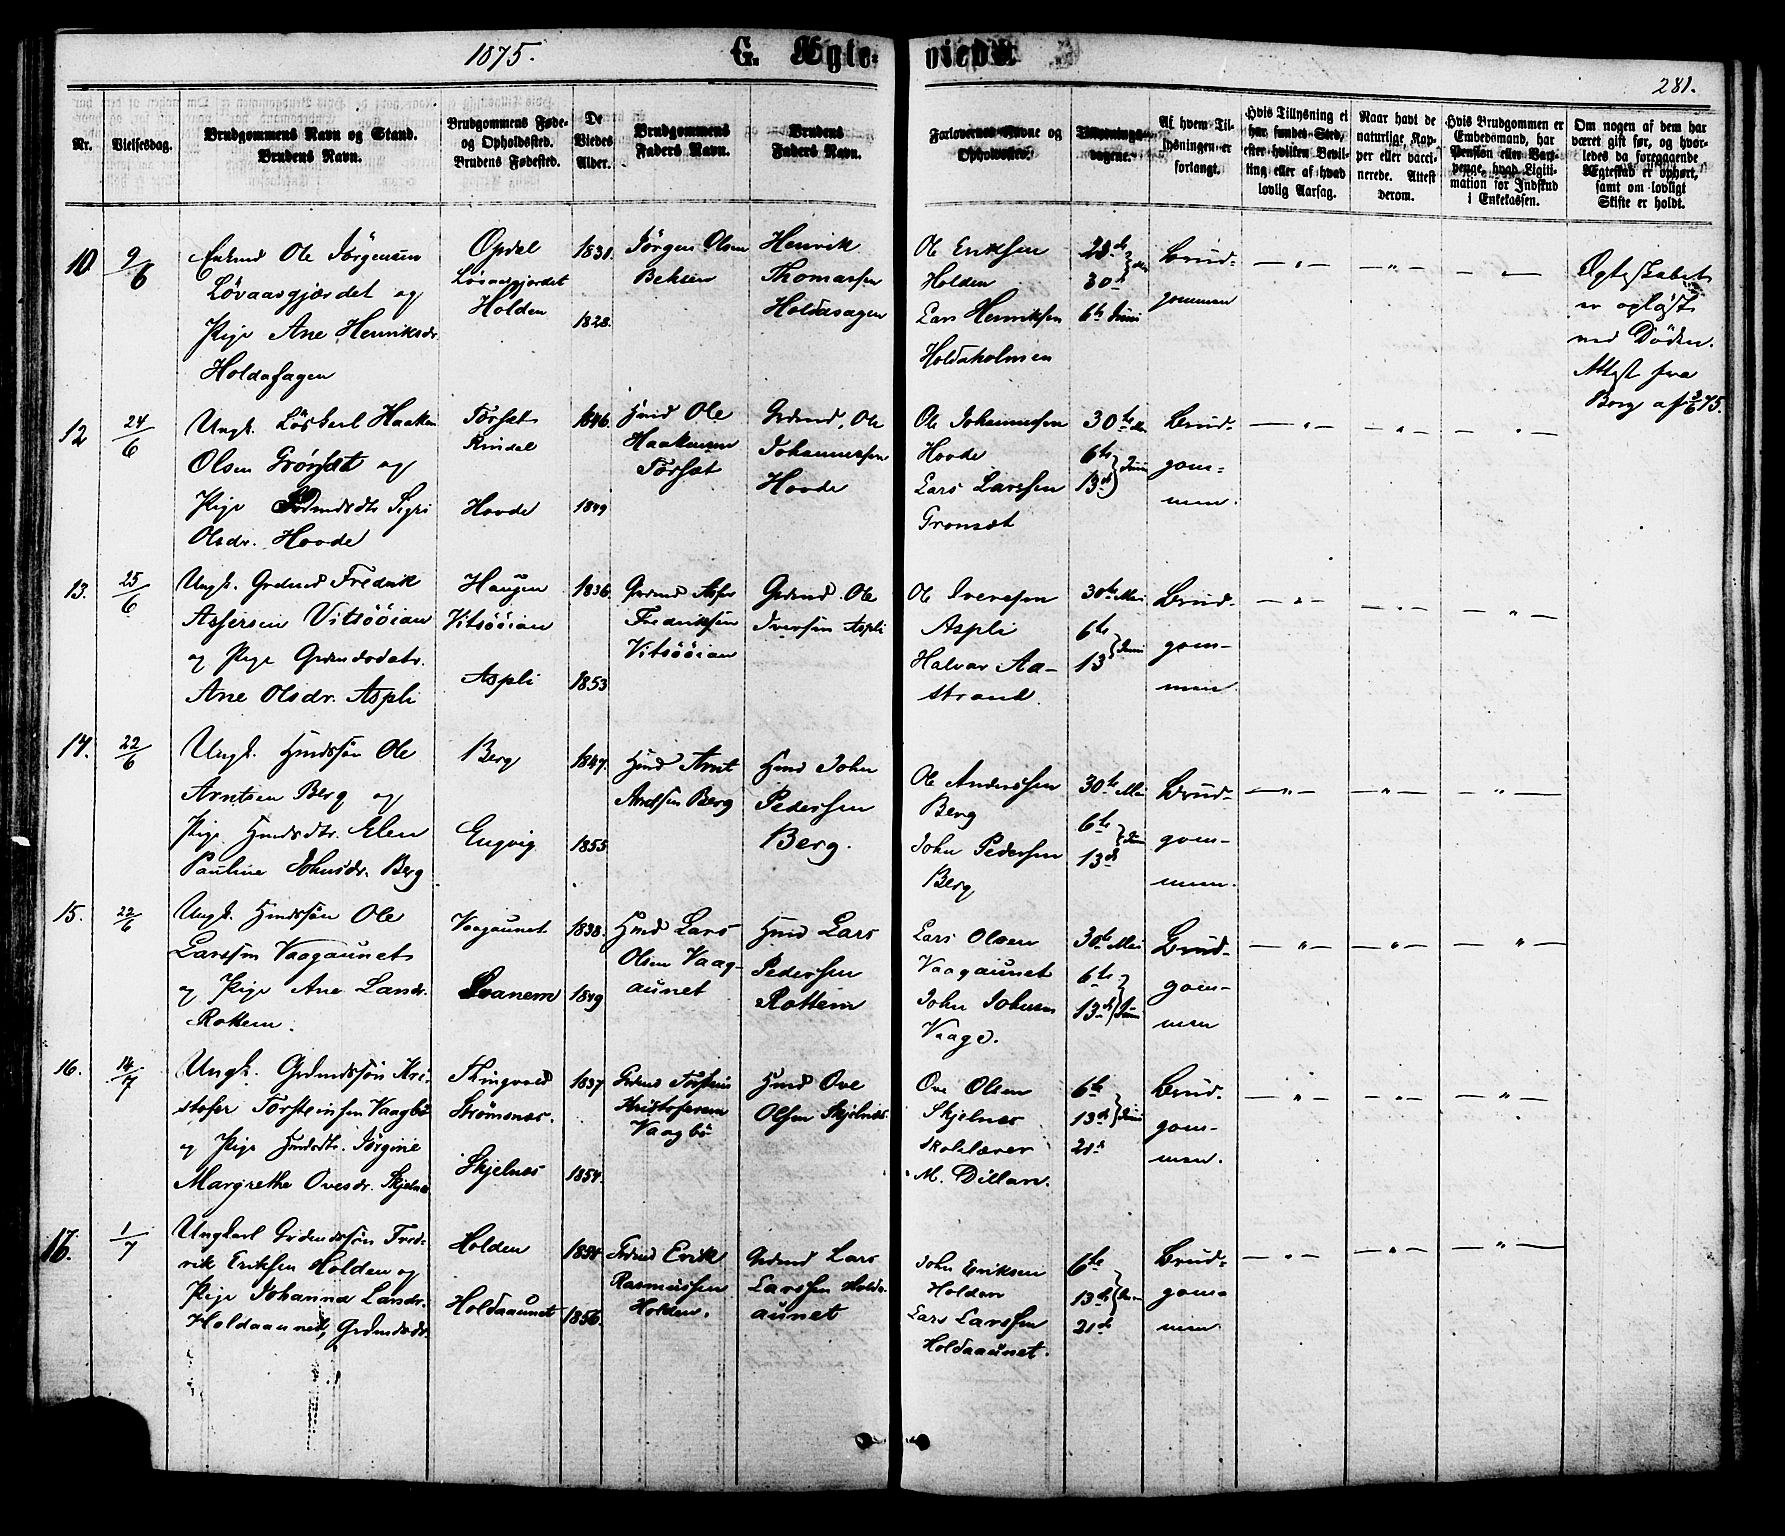 1875.
G. Ægte-
viede.
281.
Nr.
Vielsesdag.
Brudgommens Navn og Stand.
Brudens Navn.
Brudgommens Føde-
og Opholdssted.
Brudens Fødested.
De
Viedes
Alder.
Brudgommens
Faders Navn.
Brudens
Faders Navn.
Forlovernes Navne og
Opholdssted.
Tillysnings-
dagene.
Af hvem Til-
lysningen er
forlangt.
Hvis Tillysning ei
har fundet Sted,
efter hvilken Bevil-
ling eller af hvad
lovlig Aarsag.
Naar havt de
naturlige Kop-
per eller vacci-
nerede. Attest
derom.
Hvis Brudgommen er
Embedsmand, har
Pension eller Vart-
penge, hvad Ligiti-
mation for Indskud
i Enkekassen.
Om nogen af dem har
været gift før, og hvor-
ledes da foregaaende
Ægteskab er ophørt,
samt om lovligt
Skifte er holdt.
10.
9/6
Enkemd Ole Jörgensen
Løvaasgjærdet og
Pige Ane Henriksdr
Holdahagen
Opdal
Løvaasgjærdet
Holden
1831.
1828.
Jörgen Olsen
Henrik
Thomassen
Holdahagen
Ole Eriksen
Holden
Lars Henriksen
Holdaholmen
23de
30te Mai
6te Juni
Brud-
gommen
Ægteskabet
er opløst
ved Døden.
Attest fra
Borg af 2/6 75.
12
24/6
Ungk. Løskarl Haaken
Olsen Grönset og
Pige Grdmdsdtr Sigri
Olsdr. Hovde
Torset
Rindal
Hovde
1846.
1849
Hmd Ole
Haakensen
Torset
Grdmd. Ole
Johannessen
Hovde
Ole Johannessen
Hovde
Lars Larssen
Gronset
30te Mai
6te
13de Juni
Brud-
gom-
men.
13.
25/6
Ungk. Grdmd Fredrik
Assersen Vitsööian
og Pige Grdmdsdatr.
Ane Olsdr. Aspli
Haugen
Vitsööian
Aspli
1836.
1853
Grdmd Asser
Fredriksen
Vitsööian
Grdmd Ole
Iversen Aspli
Ole Iversen
Aspli
Halvor Aa-
strand
30te Mai
6te
13 Juni
Brud-
gom-
men.
14.
22/6
Ungk. Hmdssön Ole
Arntsen Berg og
Pige Hmdsdtr. Elen
Pauline Johnsdr. Berg
Berg
Engvig
1847.
1855
Hmd Arnt
Andssen Berg
Hmd John
Pedersen
Berg.
Ole Anderssen
Berg
John Pedersen
Berg
30te Mai
6te
13de Juni
Brud-
gom-
men.
15.
22/6
Ungk. Hmdssön Ole
Larssen Vaagaunet
og Pige Ane Larsdr.
Rottem.
Vaagaunet
Svanem
1838.
1849
Hmd Lars
Olsen Vaag-
aunet
Hmd Lars
Pedersen
Rottem
Lars Olsen
Vaagaunet
John Johnsen
Vaage.
30te Mai
6te
13de Juni
Brud-
gom-
men
16.
14/7
Ungk. Grdmdssön Kri-
stofer Torsteinsen Vaagbö
og Pige Hmdsdtr. Jörgine
Margrethe Ovesdr. Skjelnes
Thingvold
Strömsnes.
Skjelnes
1837
1854.
Grdmd Torstein
Kristofersen
Vaagbö
Hmd Ove
Olsen Skjelnes
Ove Olsen
Skjelnes
Skolelærer
M. Dillan.
6te
13de Juni
20de
Brud-
gom-
men.
17.
1/7
Ungkarl Grdmdssön Fred-
rik Eriksen Holden og
Pige Johanna Larsdr.
Holdaaunet, Grdmdsdr.
Holden
Holdaaunet
1854.
1856.
Grdmd Erik
Rasmussen
Holden.
Grdmd Lars
Larssen Holda-
aunet
John Eriksen
Holden
Lars Larssen
Holdaaunet.
6te
13de Juni
20de
Brud-
gom-
men